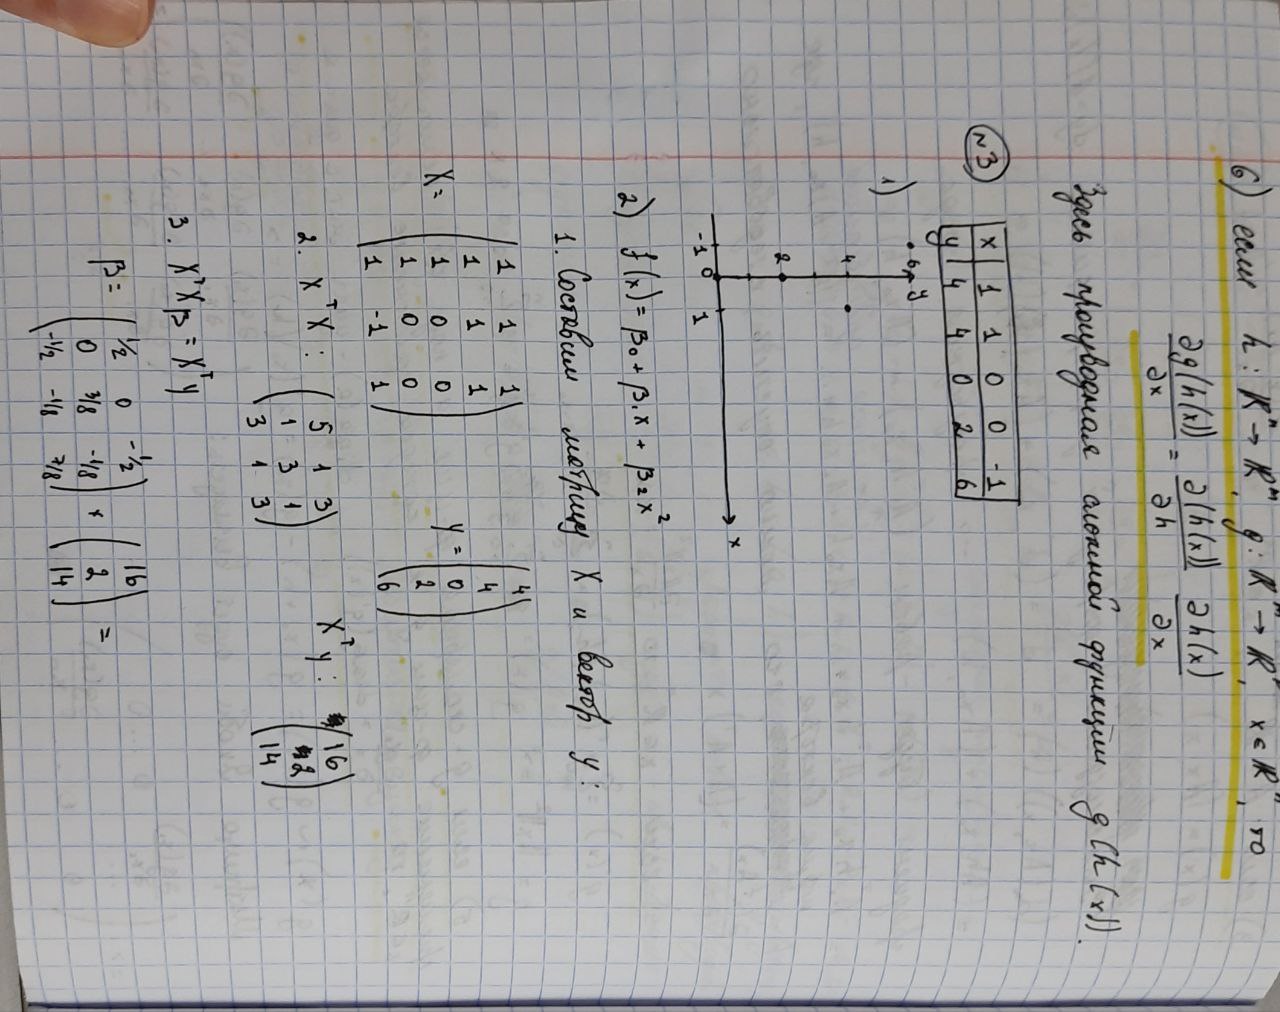 6) если h: ℝⁿ → ℝᵐ, g: ℝᵐ → ℝᵖ, x ∈ ℝⁿ, то
∂g(h(x))/∂x = ∂(h(x))/∂h ∂h(x)/∂x
Здесь производная сложной функции g(h(x)).
№3
x | 1 1 0 0 -1
y | 4 4 0 2 6
1)
6 y
4
2
-1 0 1 x
2) f(x) = β₀ + β₁x + β₂x²
1. Составим матрицу X и вектор y:
X = (1 1 1
1 1 1
1 0 0
1 0 0
1 -1 1)
y = (4
4
0
2
6)
2. XᵀX: (5 1 3
1 3 1
3 1 3)
Xᵀy: (16
2
14)
3. XᵀXβ = Xᵀy
β = (1/2 0 -1/2
0 3/8 -1/8
-1/2 -1/8 7/8) × (16
2
14) =